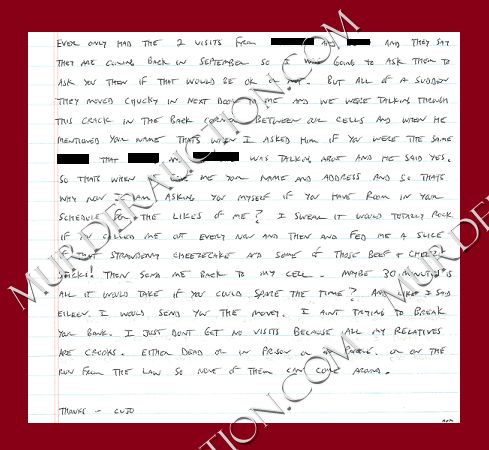 EVER ONLY HAD THE 2 VISITS FROM AND AND THEY SAY
THEY ARE COMING BACK IN SEPTEMBER SO I WAS GOING TO ASK THEM TO
ASK YOU THEN IF THAT WOULD BE OK OR NOT. BUT ALL OF A SUDDEN
THEY MOVED CHUCKY IN NEXT DOOR TO ME AND WE WERE TALKING THROUGH
THIS CRACK IN THE BACK CORNER BETWEEN OUR CELLS AND WHEN HE
MENTIONED YOUR NAME THATS WHEN I ASKED HIM IF YOU WERE THE SAME
THAT AND WAS TALKING ABOUT AND HE SAID YES.
SO THATS WHEN GAVE ME YOUR NAME AND ADDRESS AND SO THATS
WHY NOW I AM ASKING YOU MYSELF IF YOU HAVE ROOM IN YOUR
SCHEDULE FOR THE LIKES OF ME? I SWEAR IT WOULD TOTALLY ROCK
IF YOU CALLED ME OUT EVERY NOW AND THEN AND FED ME A SLICE
OF THAT STRAWBERRY CHEEZECAKE AND SOME OF THOSE BEEF & CHEEZE
STICKS! THEN SEND ME BACK TO MY CELL. MAYBE 30 MINUTES IS
ALL IT WOULD TAKE IF YOU COULD SPARE THE TIME? AND LIKE I SAID
EILEEN. I WOULD SEND YOU THE MONEY. I AINT TRYING TO BREAK
YOUR BANK. I JUST DONT GET NO VISITS BECAUSE ALL MY RELATIVES
ARE CROOKS. EITHER DEAD OR IN PRISON OR ON PAROLE. OR ON THE
RUN FROM THE LAW SO NONE OF THEM CAN COME AROUND.
THANKS - CUJO
MURDERAUCTION.COM